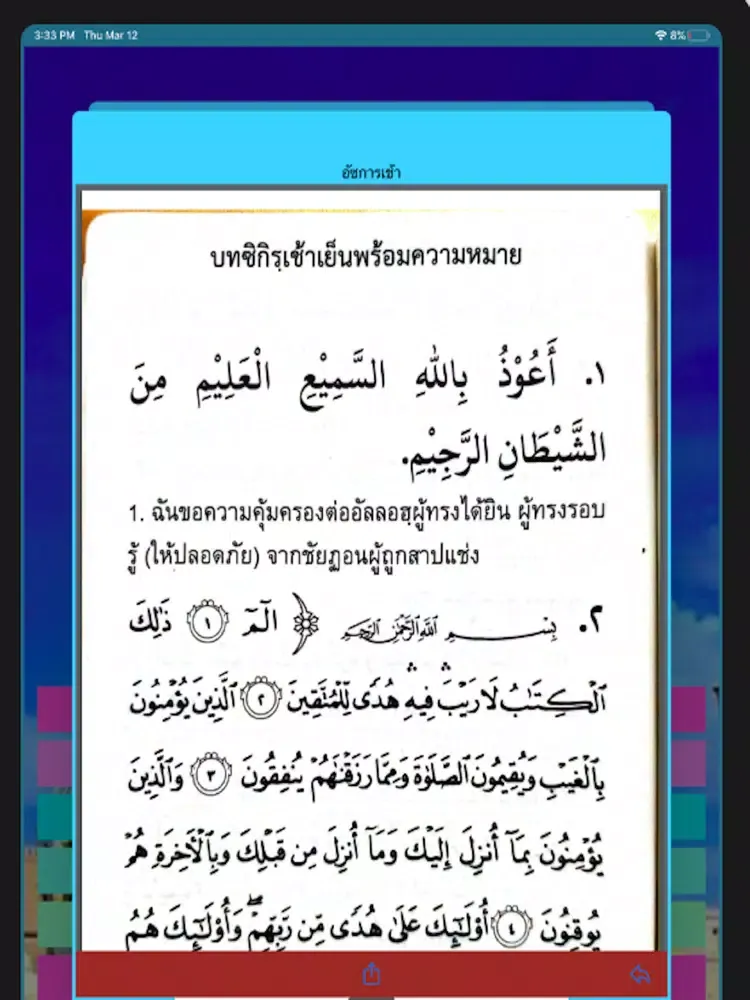 3:33 PM Thu Mar 12
8%
อัซการเช้า
บทซิกิรฺเช้าเย็นพร้อมความหมาย
١. أَعُوْذُ بِاللهِ السَّمِيْعِ الْعَلِيْمِ مِنَ
الشَّيْطَانِ الرَّجِيْمِ.
1. ฉันขอความคุ้มครองต่ออัลลอฮฺผู้ทรงได้ยิน ผู้ทรงรอบ
รู้ (ให้ปลอดภัย) จากชัยฏอนผู้ถูกสาปแช่ง
٢. بِسْمِ اللَّهِ الرَّحْمَٰنِ الرَّحِيمِ ﴿ الٓمٓ ١ ذَٰلِكَ
ٱلْكِتَٰبُ لَا رَيْبَ ۛ فِيهِ ۛ هُدًى لِّلْمُتَّقِينَ ٢ ٱلَّذِينَ يُؤْمِنُونَ
بِٱلْغَيْبِ وَيُقِيمُونَ ٱلصَّلَوٰةَ وَمِمَّا رَزَقْنَٰهُمْ يُنفِقُونَ ٣ وَٱلَّذِينَ
يُؤْمِنُونَ بِمَآ أُنزِلَ إِلَيْكَ وَمَآ أُنزِلَ مِن قَبْلِكَ وَبِٱلْءَاخِرَةِ هُمْ
يُوقِنُونَ ٤ أُو۟لَٰٓئِكَ عَلَىٰ هُدًى مِّن رَّبِّهِمْ ۖ وَأُو۟لَٰٓئِكَ هُمُ